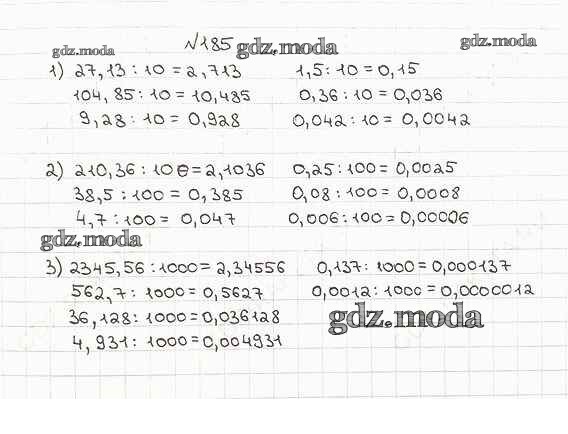 №185
gdz.moda gdz.moda gdz.moda
1) 27,13 : 10 = 2,713 1,5 : 10 = 0,15
104,85 : 10 = 10,485 0,36 : 10 = 0,036
9,28 : 10 = 0,928 0,042 : 10 = 0,0042
2) 210,36 : 100 = 2,1036 0,25 : 100 = 0,0025
38,5 : 100 = 0,385 0,08 : 100 = 0,0008
4,7 : 100 = 0,047 0,006 : 100 = 0,00006
gdz.moda
3) 2345,56 : 1000 = 2,34556 0,137 : 1000 = 0,000137
562,7 : 1000 = 0,5627 0,0012 : 1000 = 0,0000012
36,128 : 1000 = 0,036128 gdz.moda
4,931 : 1000 = 0,004931